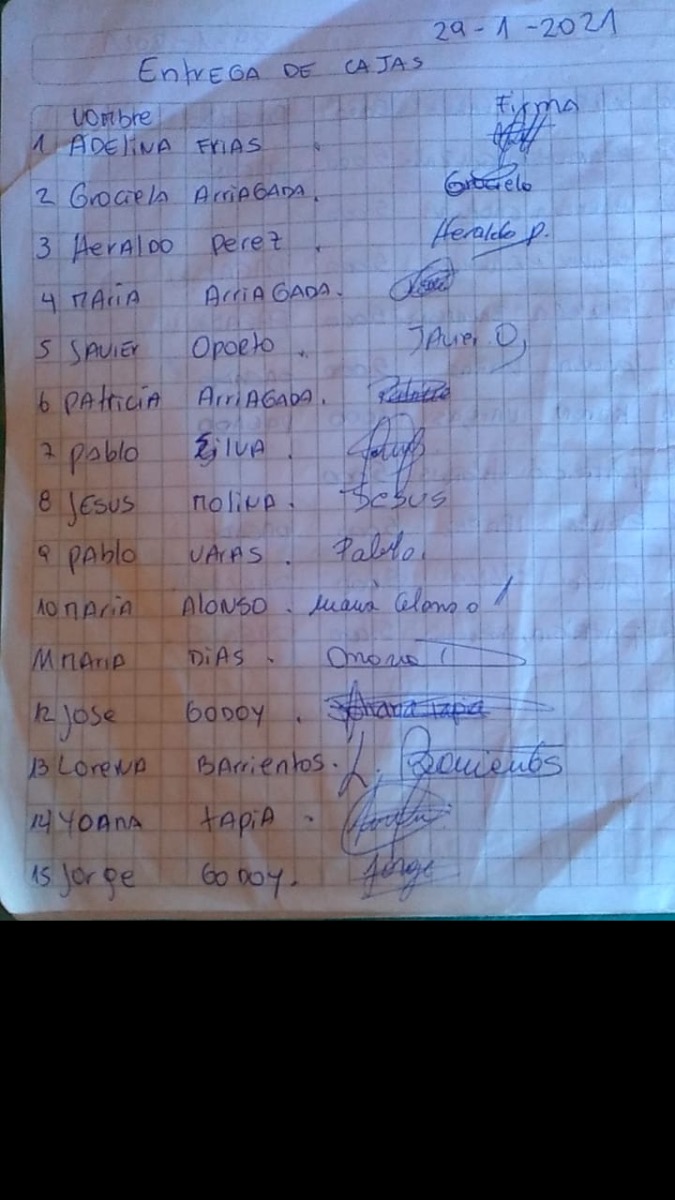 29-1-2021
EntrEGA DE CAJAS
Nombre Firma
1 ADELiNA FriAS .
2 GrocielA ArriAGADA. Grocielo
3 HerALDO perez . Heraldo p.
4 MAriA ArriAGADA.
5 JAVIEr Oporto . JAvier O,
6 pAtriciA ArriAGADA.
7 pablo SilVA .
8 JESUS MoliNA . JESUS
9 pAblo VArAS . Pablo.
10 MAriA ALONSO . Maria Alonso
11 MAriA DiAS .
12 JOSE GODOY . Johana tapia
13 LorENA BArrientos. L. Barrientos
14 YOAnA tApiA .
15 Jorge GODOY. Jorge